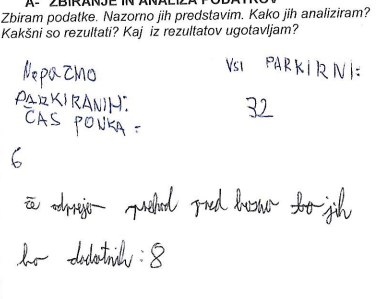 A- ZBIRANJE IN ANALIZA PODATKOV
Zbiram podatke. Nazorno jih predstavim. Kako jih analiziram?
Kakšni so rezultati? Kaj iz rezultatov ugotavljam?
NepaZNO
PARKIRANIH:
ČAS POUKA =
6
VSI PARKIRNI:
32
če odprejo prehod pred bosno bo jih
bo dodatnih: 8